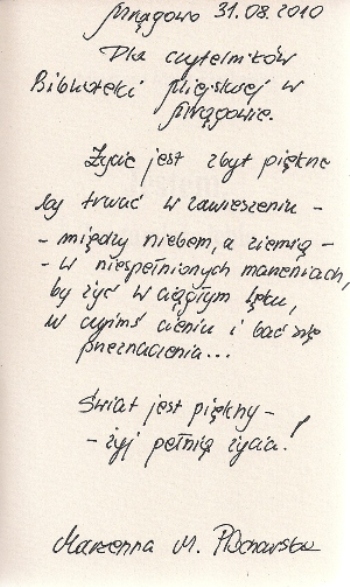 Mrągowo 31.08.2010
Dla czytelników
Biblioteki Miejskiej w
Mrągowie.
Życie jest zbyt piękne
by trwać w zawieszeniu -
- między niebem, a ziemią -
- w niespełnionych marzeniach,
by żyć w ciągłym lęku,
w czyimś cieniu i bać się
przeznaczenia...
Świat jest piękny -
- żyj pełnią życia!
Marzenna M.